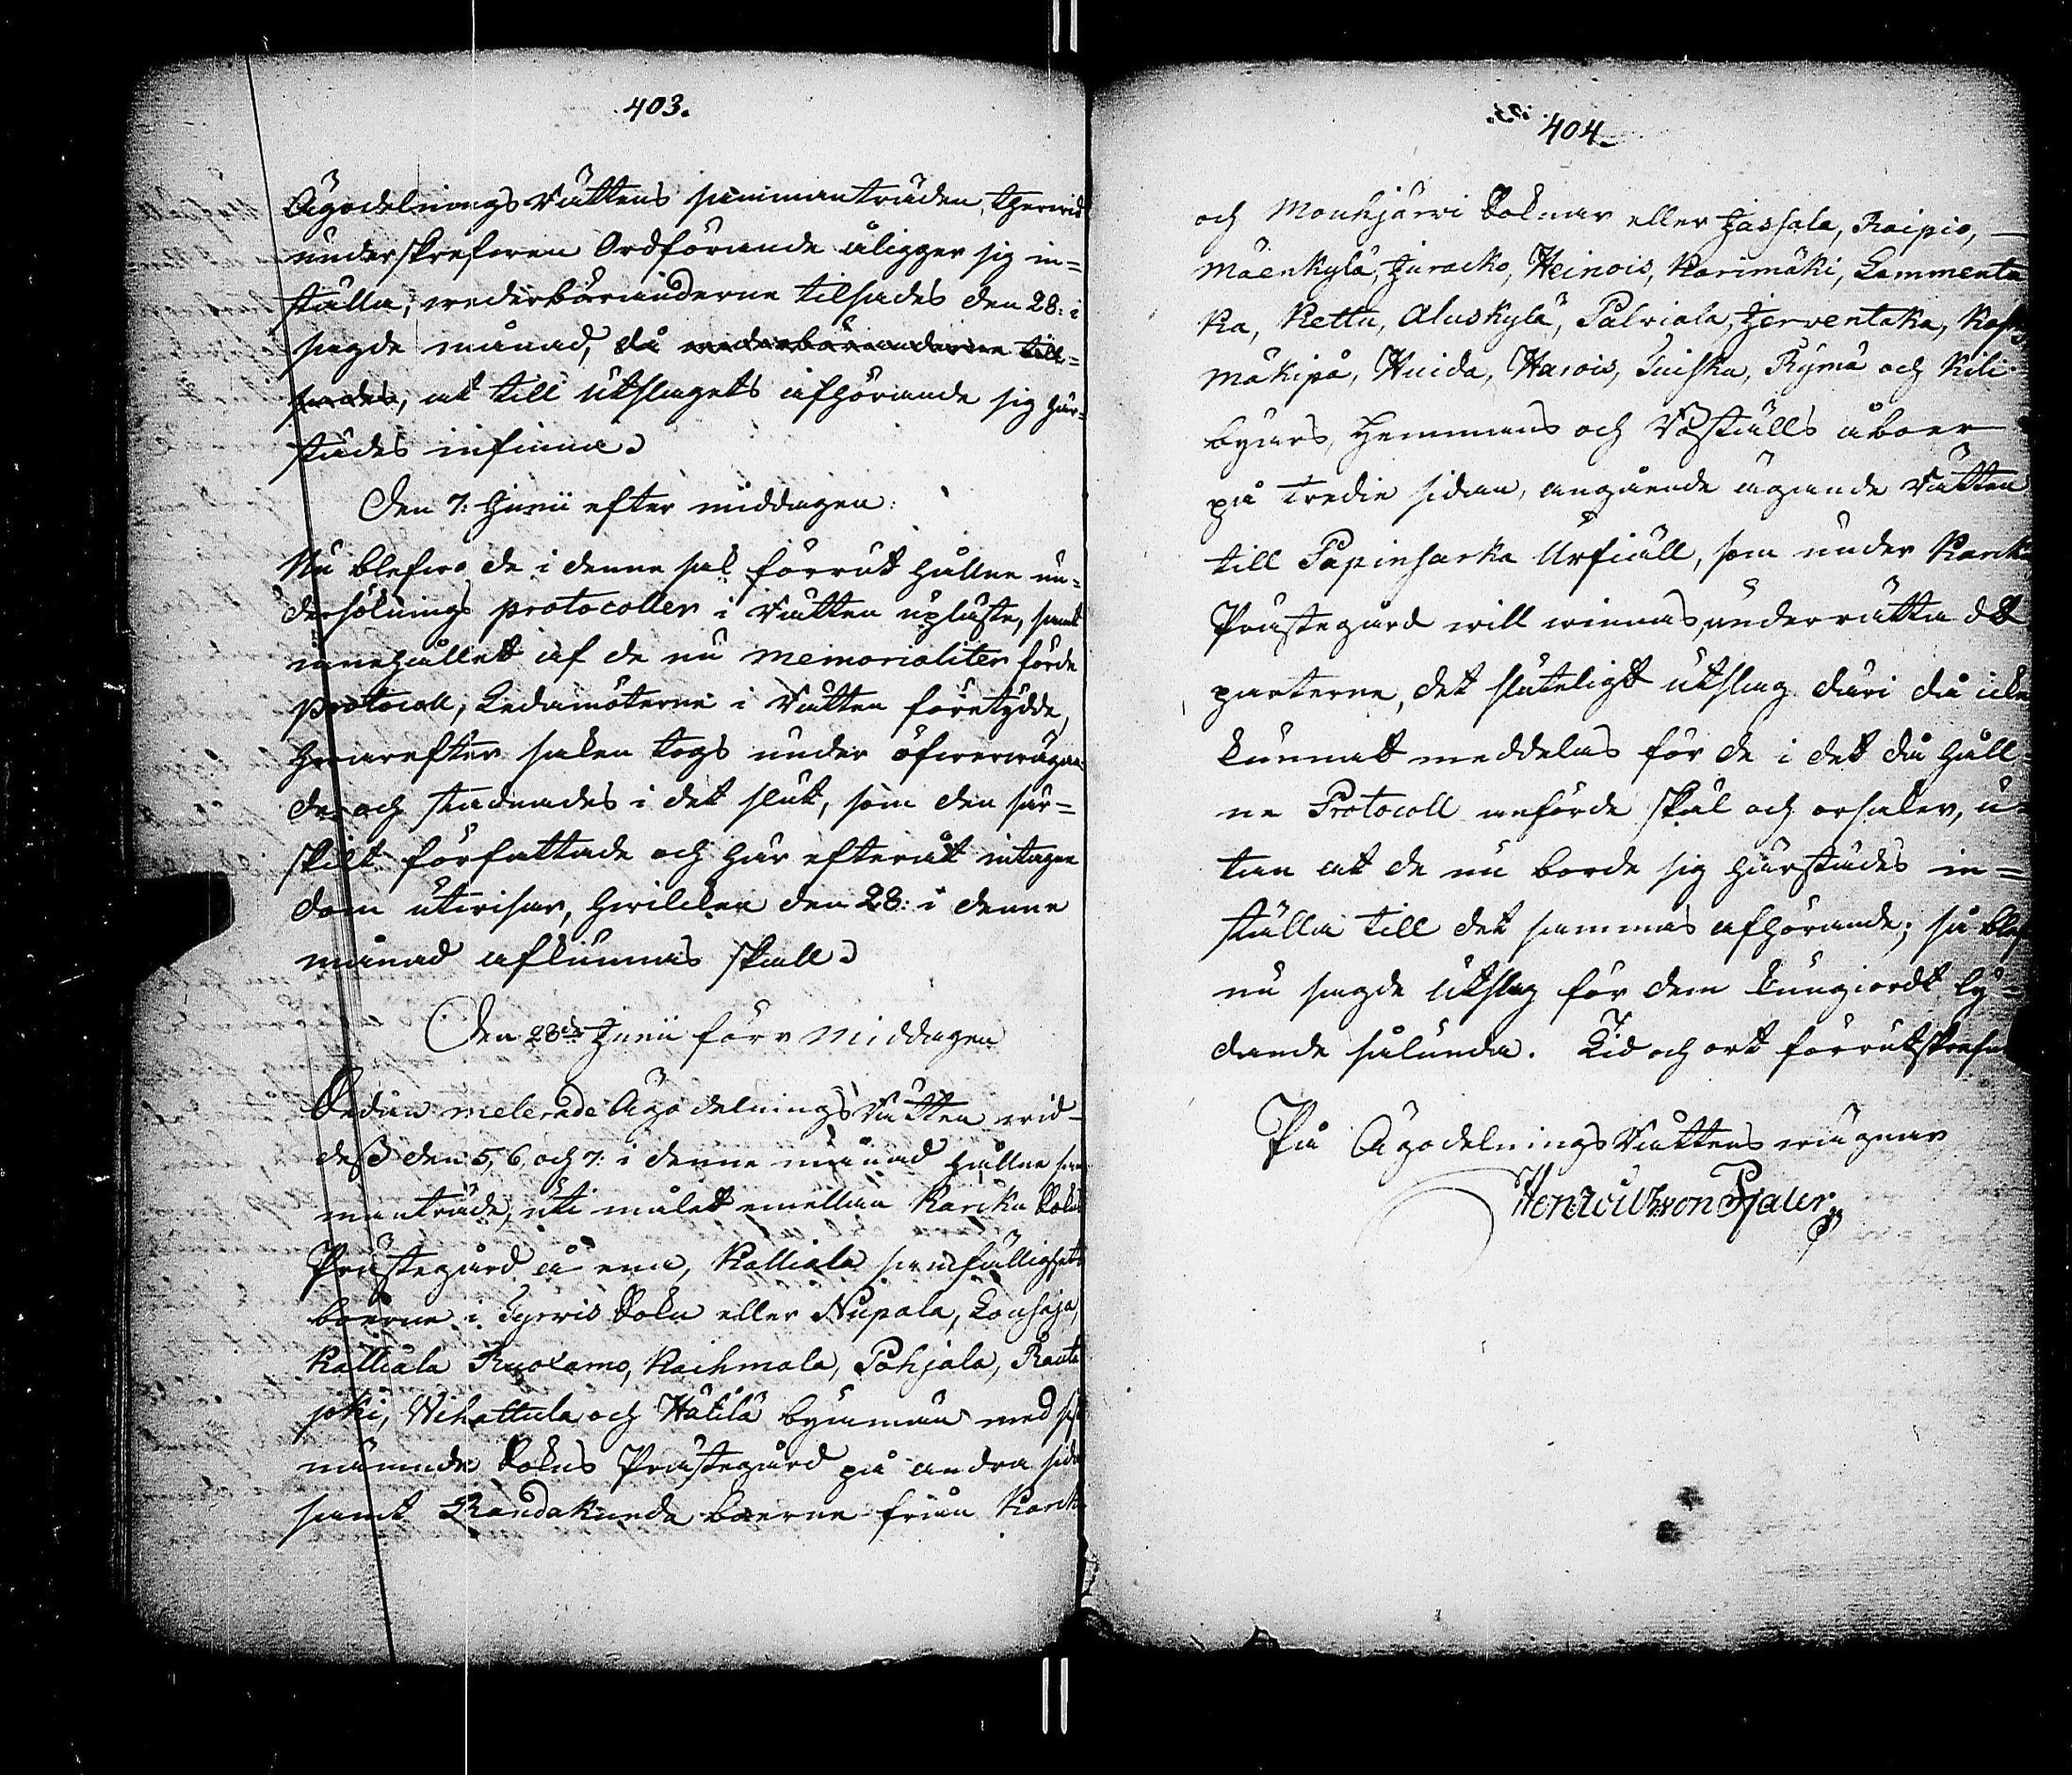 403.
Ägodelnings Rättens sammanträden, hwarvid
underskrefwen Ordförande åligger sig in=
ställa, wederbäranderne tilsades den 28: i
sagde månad, då wederbäranderne till=
sades, at till Utslagets afhörande sig här=
städes infinna.
Den 7: Junii efter middagen:
Nu blefwo de i denne sak förrut hållne un=
dersöknings protocoller i Rätten upläste, samt
innehållett af de nu memorialiter förde
protocoll, Ledamöterne i Rätten företydde,
hwarefter saken togs under öfwerwägan=
de och stadnades i det slut, som den sär=
skilt författade och här efteråt intagne
dom utwisar, hwilcken den 28: i denne
månad afkunnas skall.
Den 28de Junii förr Middagen
Sedan melerade Ägodelnings Rätten wid
dess den 5, 6, och 7: i denne månad hållne sam
manträde, uti målet emellan Karcku Sokns
Prästegård å ena, Kalliala samfällighets
boerne i Tyrvis Sokn eller Nupala, Lousaja,
Kalliala Ruolamo, Kaihmala, Pohjala, Rauta
joki, Wihattula och Hätilä byamän med sist
nämnde Sokns Prästegård på andra sidan
samt Randakunda boerne från Karcku
404.
och Mouhijärvi Soknar eller Jassala, Raipio,
Mäenkylä, Juracko, Heinois, Karimäki, Lammenta
ka, Kettu, Aluskylä, Palviala, Jerventaka,
Mäkipä, Huida, Harois, Tuiska, Rymä och Kili
byars, Hemmans och Roställs åboer
på tredie sidan, angående ägande Rätten
till Papinsarka Urfiäll, som under Karcku
Prästegård will winnas, underrätta de
parterne, det sluteligt utslag däri då icke
kunnatt meddelas för de i det då håll=
ne Protocoll anförde skäl och orsaker, u=
tan at de nu borde sig härstädes in=
ställa till det sammas afhörande; så blef
nu sagde Utslag för dem kungiordt ly=
dande sålunda. Tid och ort förrutskrefne
På Ägodelnings Rättens wägnar